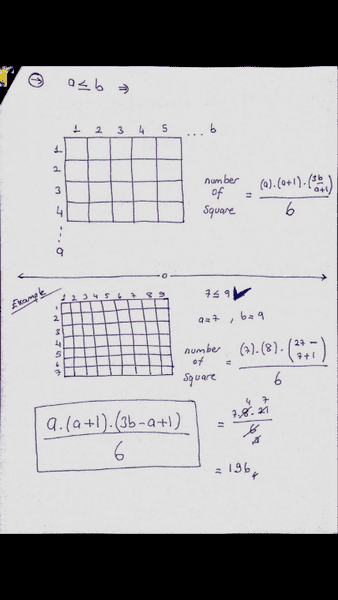 → a ≤ b ⇒
1 2 3 4 5 ... b
1
2
3
4
⋮
a
number of square = (a).(a+1).(3b-a+1) / 6
Example
1 2 3 4 5 6 7 8 9
1
2
3
4
5
6
7
7 ≤ 9 ✓
a=7 , b=9
number of square = (7).(8).(27-7+1) / 6
a.(a+1).(3b-a+1) / 6
4 7
= 7.8.21 / 6
= 196